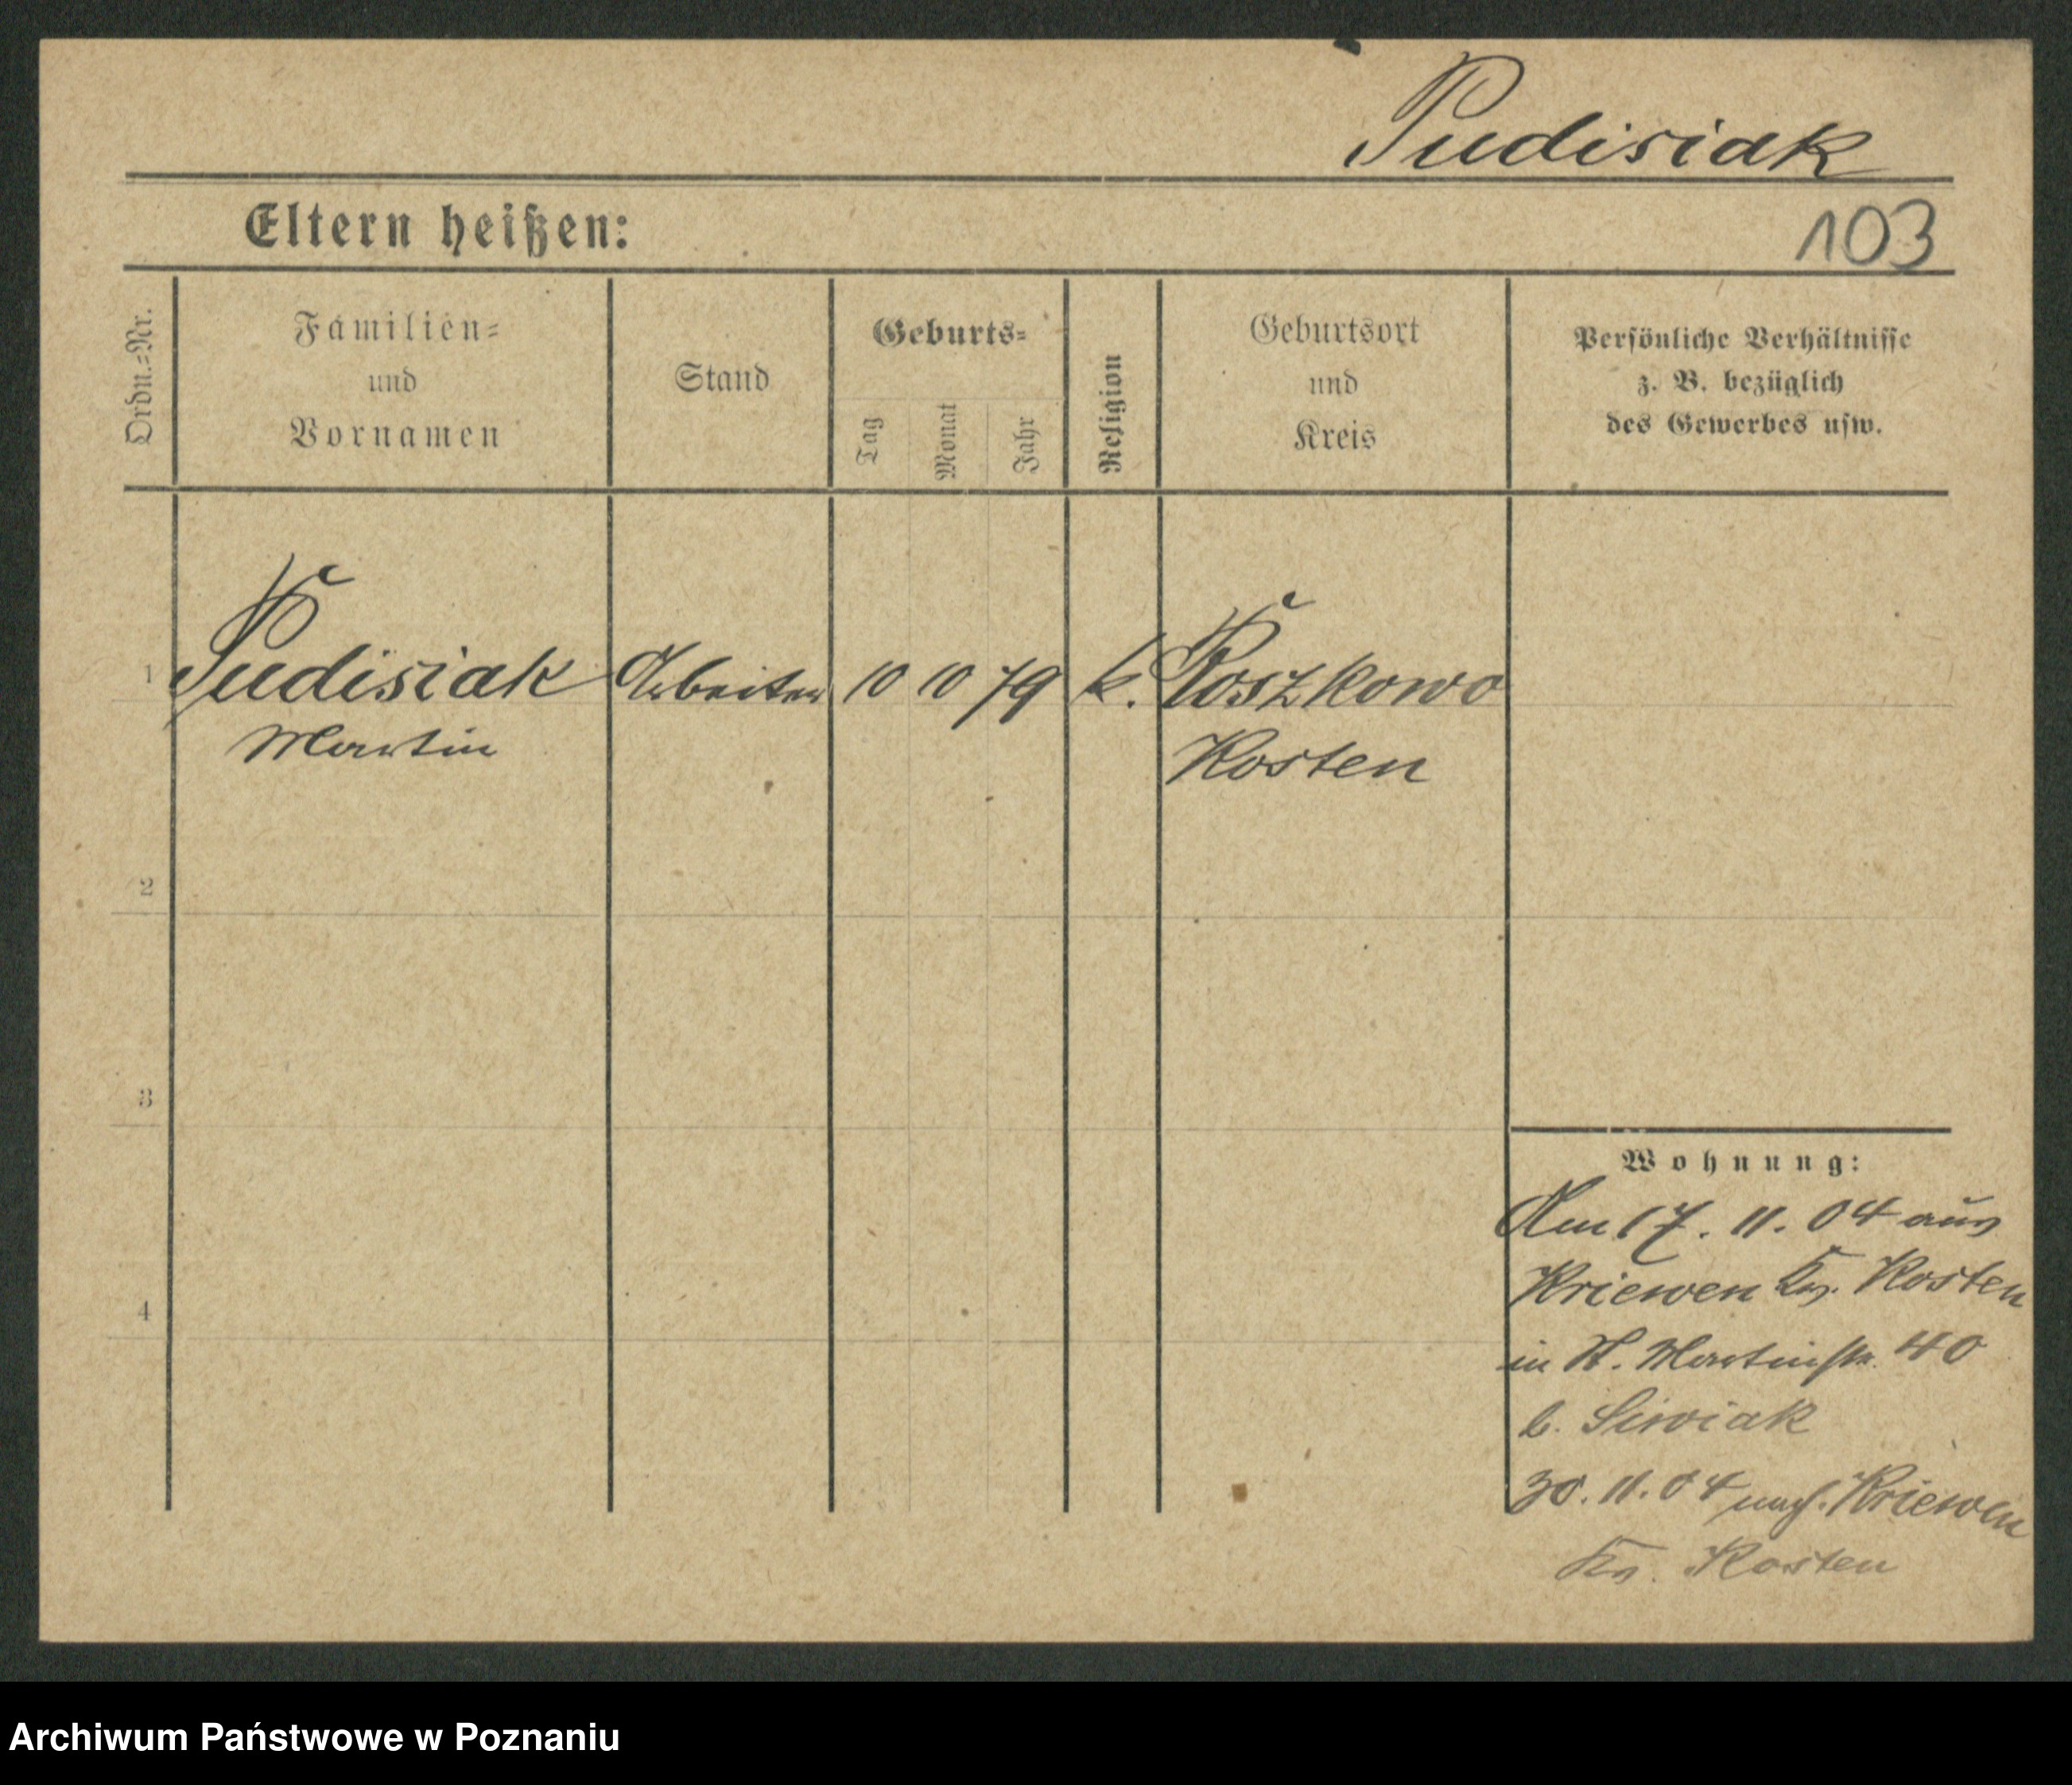 Pudisiak
Eltern heißen:
103
Ordn.=Nr.
Familien=
und
Vornamen
Stand
Geburts=
Tag
Monat
Jahr
Religion
Geburtsort
und
Kreis
Persönliche Verhältnisse
z. B. bezüglich
des Gewerbes usw.
1
Pudisiak
Martin
Arbeiter
10
10
79
k.
Roszkowo
Kosten
2
3
4
Wohnung:
Am 17. 11. 04 aus
Kriewen Kr. Kosten
in St. Martinstr. 40
b. Siwiak
30. 11. 04 nach Kriewen
Kr. Kosten
Archiwum Państwowe w Poznaniu